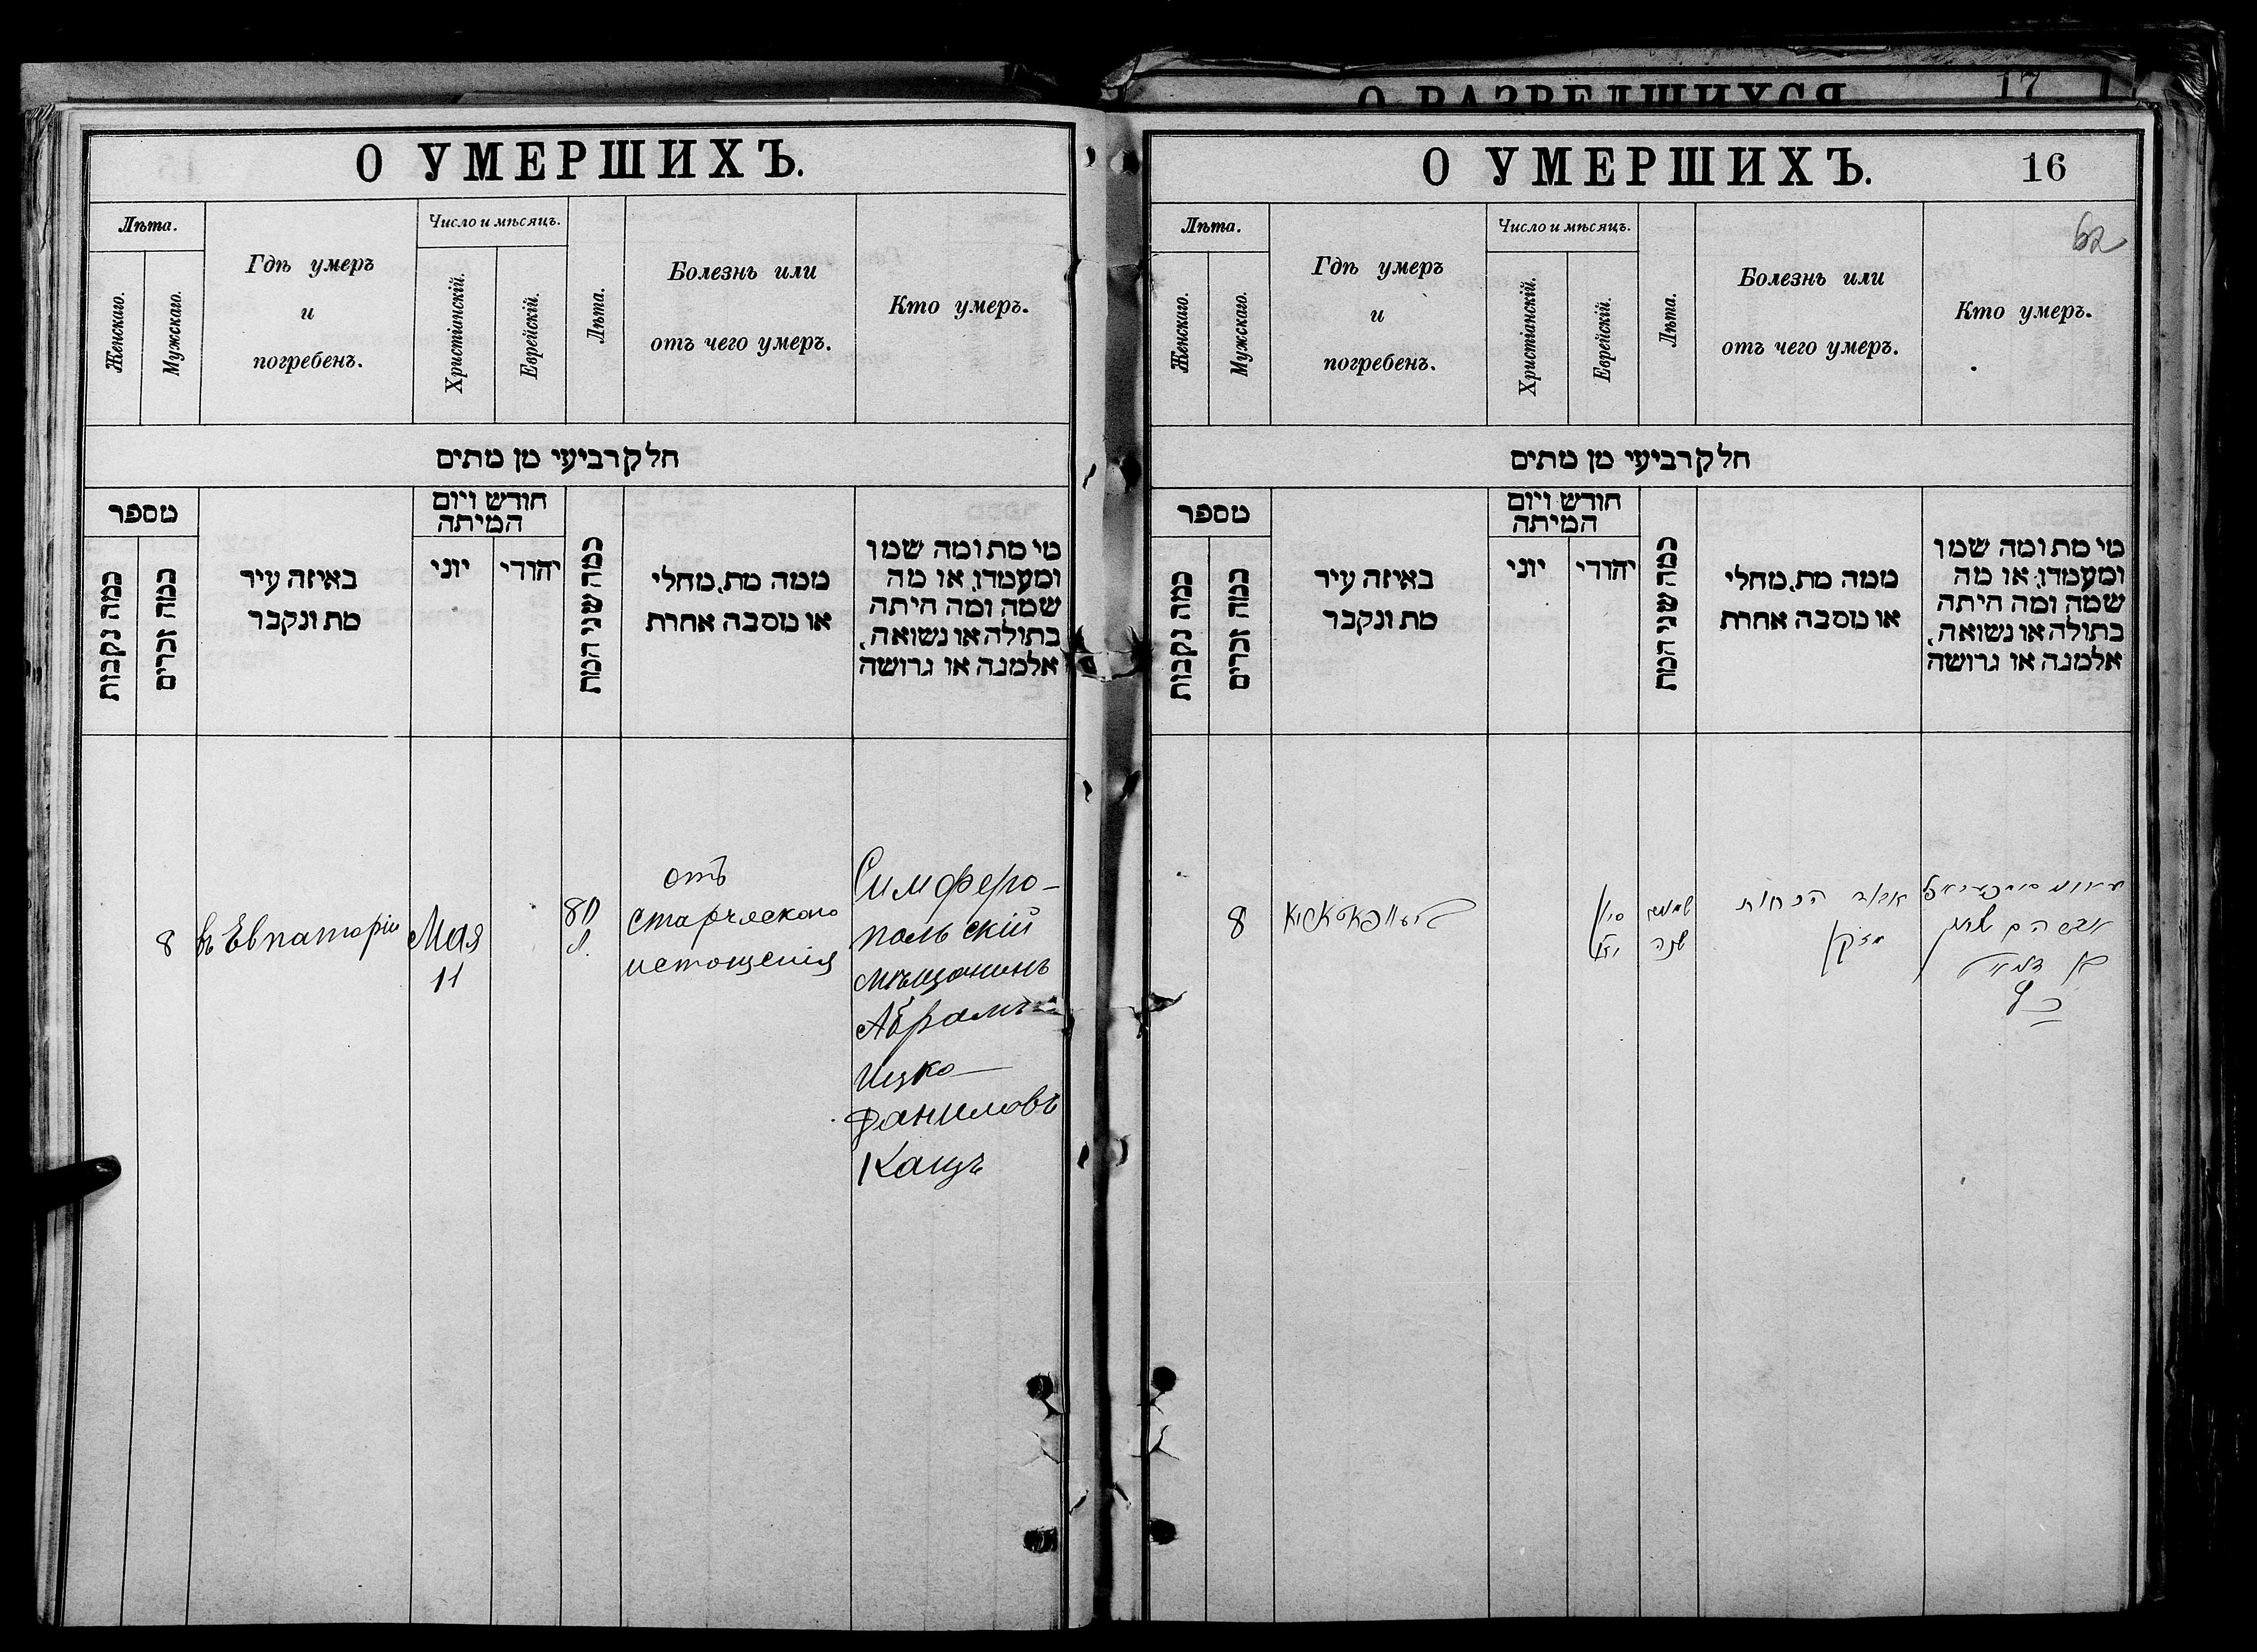 О РАЗВЕДШИХСЯ
17
О УМЕРШИХЪ.
Лѣта.
Женскаго.
Мужскаго.
Гдѣ умеръ
и
погребенъ.
Число и мѣсяцъ.
Христіанскій.
Еврейскій.
Лѣта.
Болезнь или
отъ чего умеръ.
Кто умеръ.
חלק רביעי מן מתים
מספר
כמה נקבות
כמה זכרים
באיזה עיר
מת ונקבר
חודש ויום
המיתה
יוני
יהודי
כמה שני המת
ממה מת, מחלי
או מסבה אחרת
מי מת ומה שמו
ומעמדו, או מה
שמה ומה היתה
בתולה או נשואה,
אלמנה או גרושה
8
въ Евпаторіи
Мая
11
80
л.
отъ
старческаго
истощенія
Симферо-
польскій
мѣщанинъ
Абрамъ-
Ицко
Даниловъ
Кацъ
О УМЕРШИХЪ.
16
62
Лѣта.
Женскаго.
Мужскаго.
Гдѣ умеръ
и
погребенъ.
Число и мѣсяцъ.
Христіанскій.
Еврейскій.
Лѣта.
Болезнь или
отъ чего умеръ.
Кто умеръ.
חלק רביעי מן מתים
מספר
כמה נקבות
כמה זכרים
באיזה עיר
מת ונקבר
חודש ויום
המיתה
יוני
יהודי
כמה שני המת
ממה מת, מחלי
או מסבה אחרת
מי מת ומה שמו
ומעמדו, או מה
שמה ומה היתה
בתולה או נשואה,
אלמנה או גרושה
8
שנה
הכחות
מזקן
אברהם
בן
כ"ץ